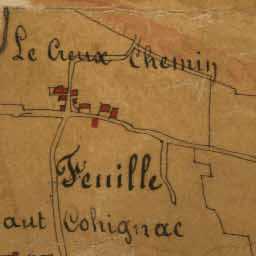 Le Creux Chemin
Feuille
aut Cohignac